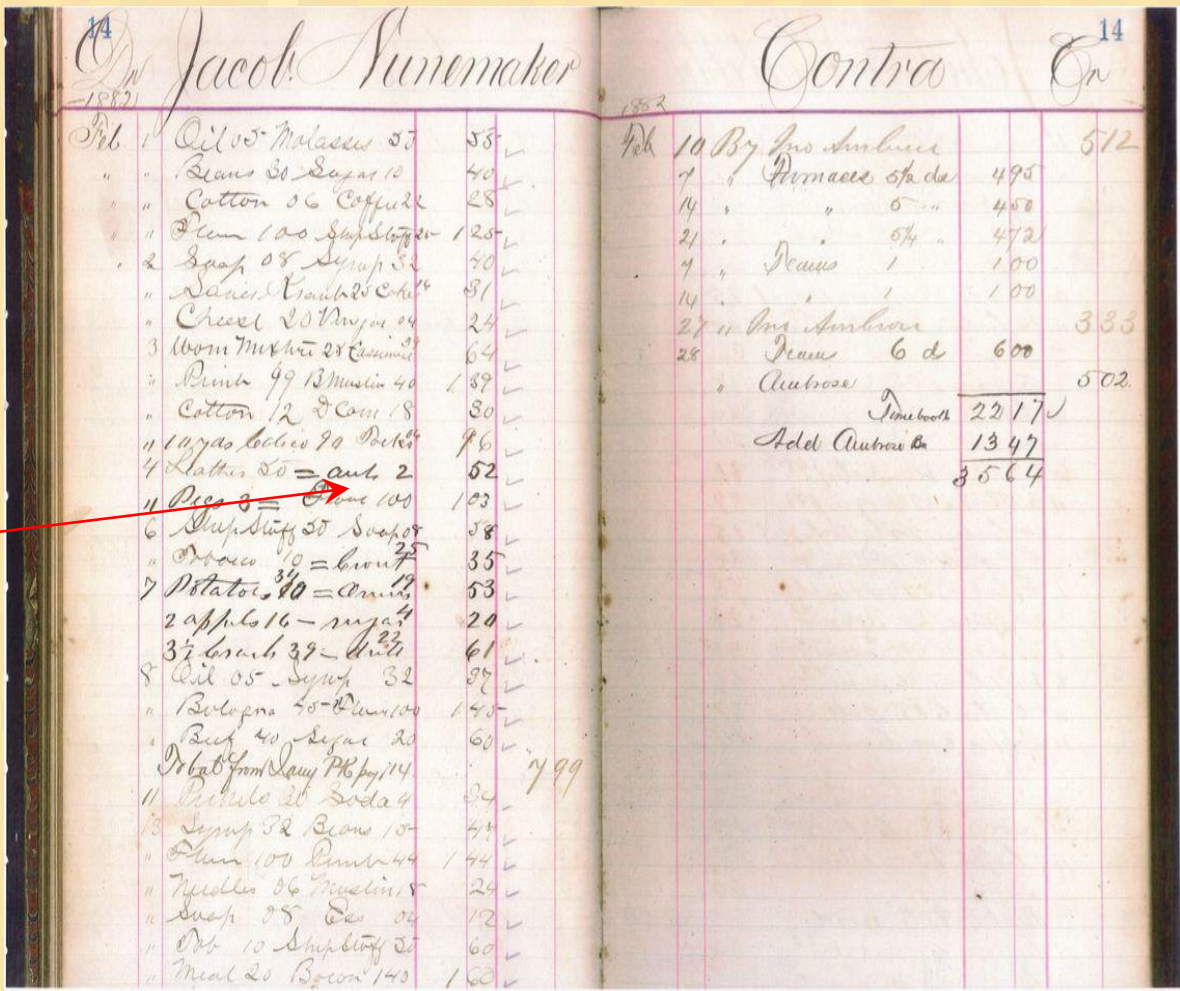 14
Dr Jacob Nunemaker
1882
Feb 1 Oil 05 Molasses 53 58
" " Beans 30 Sugar 10 40
" " Cotton 06 Coffee 22 28
" " Flour 100 Ship Stuff 25 125
" 2 Soap 08 Syrup 32 40
" 31
" Cheese 20 04 24
3 64
" 99 B Muslin 40 139
" Cotton 12 D Corn 18 30
" 10 yds Calico 90 96
4 Leather 50 = 2 52
" Pegs 3 = Flour 100 103
6 Ship Stuff 50 Soap 08 58
" Tobacco 10 = 25 35
7 Potatoes = 19 53
2 apples 16 – sugar 4 20
39 – 22 61
8 Oil 05 Syrup 32 37
" Bologna 45 Flour 100 145
" Beef 40 Sugar 20 60
from 14 799
11 Soda 4
13 Syrup 32 Beans 15
" Flour 100 44 144
" Needles 06 Muslin 18 24
" Soap 08 04 12
" Tob 10 Ship Stuff 50 60
" Meal 20 Bacon 140 160
14
Contra Cr
1882
Feb 10 By Jno Ambrose 512
7 " Furnaces 5½ ds 495
14 " " 5 " 450
21 " " 5¼ " 472
7 " Teams 1 100
14 " " 1 100
27 " Jno Ambrose 333
28 Teams 6 d 600
" Ambrose 502
Timebook 2217
Add Ambrose 1347
3564